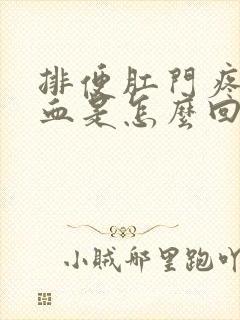 排便肛門疼
血是怎麼回
小賊哪里跑吖